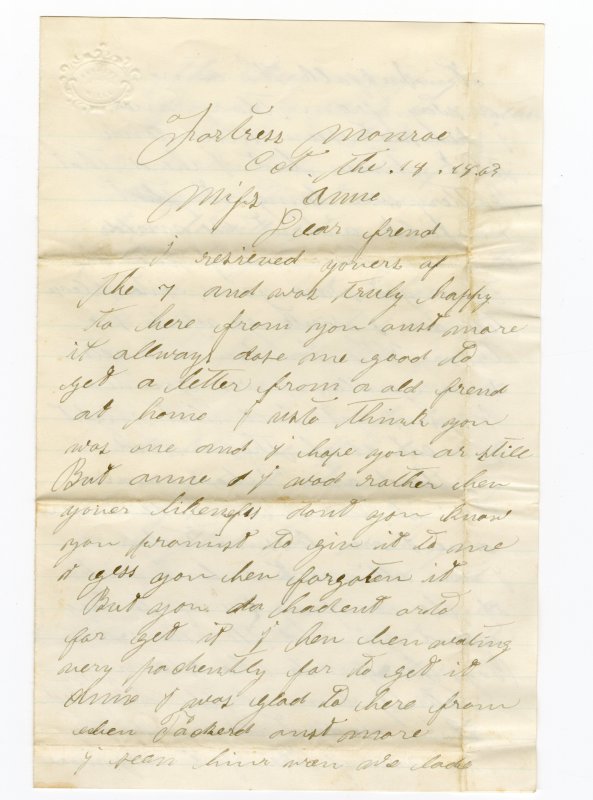 Fortress Monroe
Oct. the . 18 . 1863
Miss Anne
Dear frend
I resieved yovers of
the 7 and was truly happy
to here from you onst more
it allways dose me good to
get a letter from a old frend
at home I usto think you
was one and I hope you ar still
But anne I wod rather hen
yover likeness dont you know
you promist to giv it to me
I gess you hen forgoten it
But you hadent orto
for get it I hen ben wating
very pachently for to get it
Anne I was glad to here from
onst more
I seen him wen we